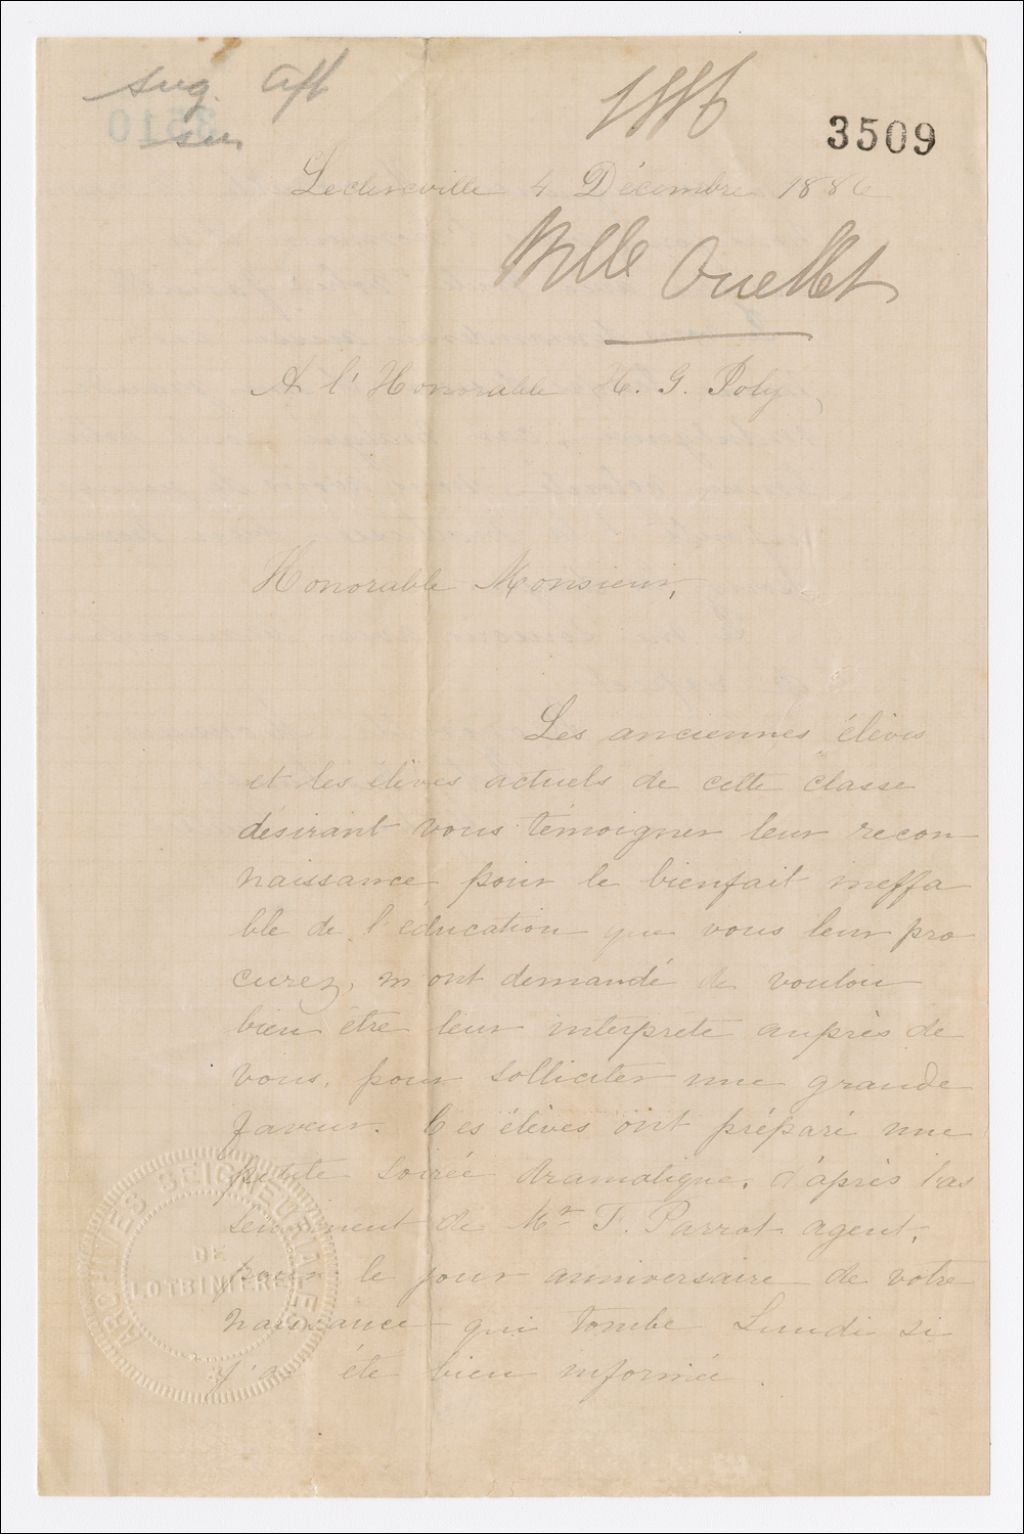 Aug. Aff
1886
3509
sur
Leclercville 4 Décembre 1886
Mlle Ouellet
A l'Honorable H. G. Joly,
Honorable Monsieur,
Les anciennes élèves
et les élèves actuels de cette classe
désirant vous témoigner leur recon
naissance pour le bienfait ineffa
ble de l'éducation que vous leur pro
curez, m'ont demandé de vouloir
bien être leur interprète auprès de
vous, pour solliciter une grande
faveur. Ces élèves ont préparé une
petite soirée dramatique, d'après l'as
sentiment de Mr F. Parrot agent,
pour le jour anniversaire de votre
naissance qui tombe Lundi si
j'ai été bien informée.
ARCHIVES SEIGNEURIALES
DE
LOTBINIÈRE